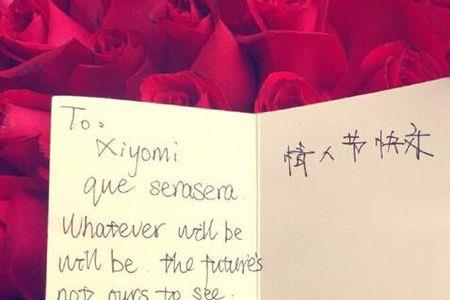 To:
Xiyomi
que serasera.
Whatever will be
will be. the future's
not ours to see.
情人节快乐